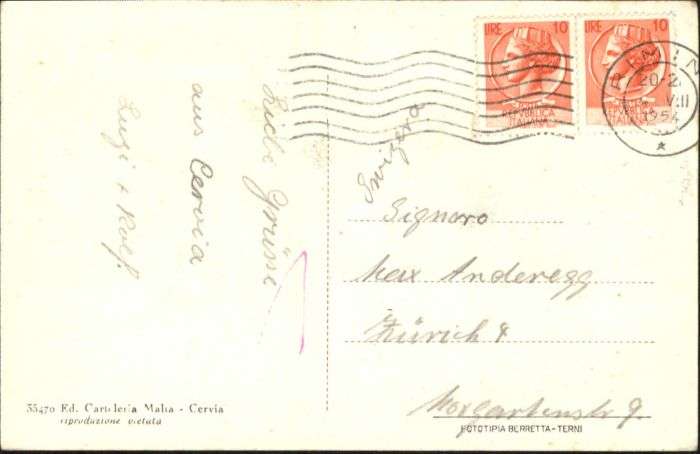 LIRE 10
REPVBBLICA
ITALIANA
LIRE 10
REPVBBLICA
ITALIANA
RIMINI
20-21
VII
1954
Liebe Grüsse
aus Cervia
Luzi + Rolf.
Svizzera
Signoro
Max Anderegg
Zürich 4
Morgartenstr 9.
35470 Ed. Cartoleria Malta - Cervia
riproduzione vietata
FOTOTIPIA BERRETTA - TERNI